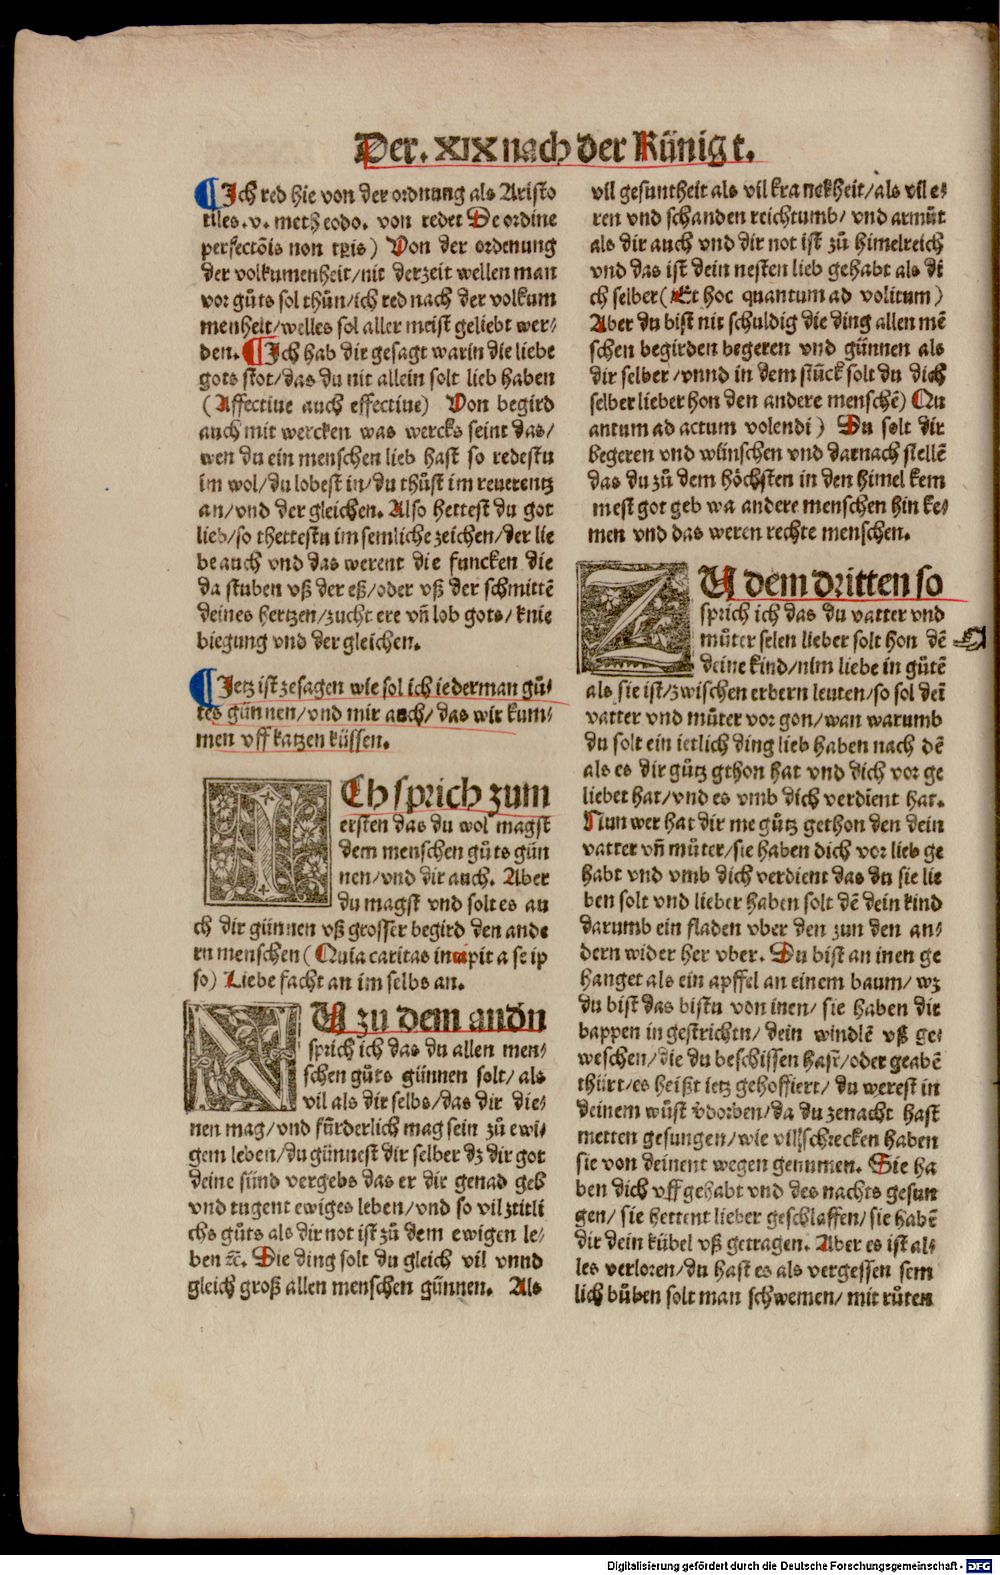 Der. XIX nach der Künig t.
¶ Ich red hie von der ordnung als Aristo
tiles. v. metheodo. von redet De ordine
perfectõis non tp̃is) Von der ordenung
der volkumenheit/nit der zeit wellen man
vor gůts sol thůn/ich red nach der volkum
menheit/welles sol aller meist geliebt wer⸗
den. ¶ Ich hab dir gesagt warin die liebe
gots stot/das du nit allein solt lieb haben
(Affectiue auch effectiue) Von begird
auch mit wercken was wercks seint das/
wen du ein menschen lieb hast so redestu
im wol/du lobest in/du thůst im reuerentz
an/vnd der gleichen. Also hettest du got
lieb/so thettestu im semliche zeichen/der lie
be auch vnd das werent die funcken die
da stuben vß der eß/oder vß der schmittẽ
deines hertzen/zucht ere vñ lob gots/knie
biegung vnd der gleichen.
¶ Jetz ist zesagen wie sol ich iederman gů⸗
tes günnen/vnd mir auch/das wir kum⸗
men vff katzen küssen.
ICh sprich zum
ersten das du wol magst
dem menschen gůts gün
nen/vnd dir auch. Aber
du magst vnd solt es au
ch dir günnen vß grosser begird den ande
rn menschen (Quia caritas incipit a se ip
so) Liebe facht an im selbs an.
NU zu dem andn̄
sprich ich das du allen men⸗
schen gůts günnen solt/als
vil als dir selbs/das dir die⸗
nen mag/vnd fürderlich mag sein zů ewi⸗
gem leben/du günnest dir selber dz dir got
deine sünd vergebs das er dir genad geb
vnd tugent ewiges leben/vnd so vil ztitli
chs gůts als dir not ist zů dem ewigen le⸗
ben ⁊c̃. Die ding solt du gleich vil vnnd
gleich groß allen menschen günnen. Als
vil gesuntheit als vil kranckheit/als vil e⸗
ren vnd schanden reichtumb/vnd armůt
als dir auch vnd dir not ist zů himelreich
vnd das ist dein nesten lieb gehabt als di
ch selber (Et hoc quantum ad volitum)
Aber du bist nit schuldig die ding allen mẽ
schen begirden begeren vnd günnen als
dir selber/vnnd in dem stück solt du dich
selber lieber hon den andere menschẽ) Qu
antum ad actum volendi) Du solt dir
begeren vnd wünschen vnd darnach stellẽ
das du zů dem höchsten in den himel kem
mest got geb wa andere menschen hin ke⸗
men vnd das weren rechte menschen.
ZU dem dritten so
sprich ich das du vatter vnd
můter selen lieber solt hon dẽ
deine kind/nim liebe in gůtẽ
als sie ist/zwischen erbern leuten/so sol deĩ
vatter vnd můter vor gon/wan warumb
du solt ein ietlich ding lieb haben nach dẽ
als es dir gůtz gthon hat vnd dich vor ge
liebet hat/vnd es vmb dich verdient hat.
Nun wer hat dir me gůtz gethon den dein
vatter vñ můter/sie haben dich vor lieb ge
habt vnd vmb dich verdient das du sie lie
ben solt vnd lieber haben solt dẽ dein kind
darumb ein fladen vber den zun den an⸗
dern wider her vber. Du bist an inen ge
hanget als ein apffel an einem baum/wz
du bist das bistu von inen/sie haben dir
bappen in gestrichtn/dein windlẽ vß ge⸗
weschen/die du beschissen hast/oder geabẽ
thürt/es heißt ietz gehoffiert/du werest in
deinem wůst v̈dorben/da du zenacht hast
metten gesungen/wie vil schrecken haben
sie von deinent wegen genumen. Sie ha
ben dich vff gehabt vnd des nachts gesun
gen/sie hettent lieber geschlaffen/sie habẽ
dir dein kübel vß getragen. Aber es ist al⸗
les verloren/du hast es als vergessen sem
lich bůben solt man schwemen/mit růten
Digitalisierung gefördert durch die Deutsche Forschungsgemeinschaft - DFG